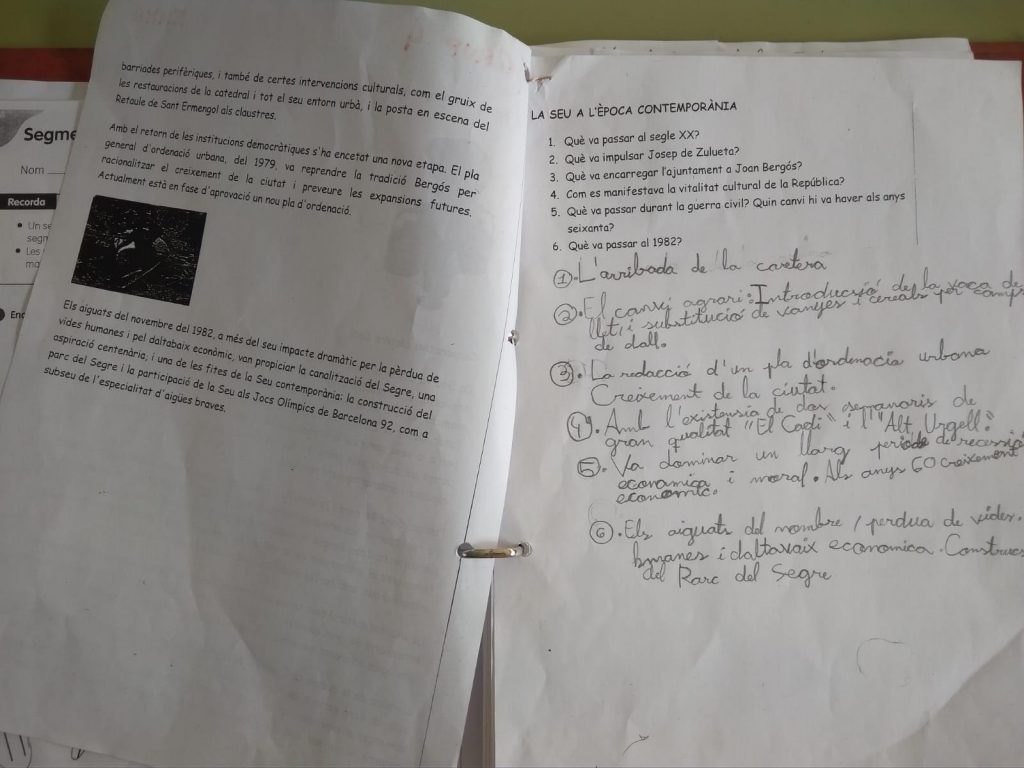 barriades perifèriques, i també de certes intervencions culturals, com el gruix de
les restauracions de la catedral i tot el seu entorn urbà, i la posta en escena del
Retaule de Sant Ermengol als claustres.
Amb el retorn de les institucions democràtiques s'ha encetat una nova etapa. El pla
general d'ordenació urbana, del 1979, va reprendre la tradició Bergós per
racionalitzar el creixement de la ciutat i preveure les expansions futures.
Actualment està en fase d'aprovació un nou pla d'ordenació.
Els aiguats del novembre del 1982, a més del seu impacte dramàtic per la pèrdua de
vides humanes i pel daltabaix econòmic, van propiciar la canalització del Segre, una
aspiració centenària, i una de les fites de la Seu contemporània: la construcció del
parc del Segre i la participació de la Seu als Jocs Olímpics de Barcelona 92, com a
subseu de l'especialitat d'aigües braves.
Segme
Nom
Recorda
Un se
segm
Les
ma
LA SEU A L'ÈPOCA CONTEMPORÀNIA
1. Què va passar al segle XX?
2. Què va impulsar Josep de Zulueta?
3. Què va encarregar l'ajuntament a Joan Bergós?
4. Com es manifestava la vitalitat cultural de la República?
5. Què va passar durant la guerra civil? Quin canvi hi va haver als anys
seixanta?
6. Què va passar al 1982?
1. L'arribada de la caretera
2. El canvi agrari: Introducció de la vaca de
llet i substitució de vinyes i cereals per camps
de dall.
3. La redacció d'un pla d'ordenacia urbana
Creixement de la ciutat.
4. Amb l'existensia de dos semanaris de
gran qualitat "El Cadi" i l'"Alt Urgell".
5. Va dominar un llarg periode de recessió
economica i moral. Als anys 60 creixement
economic.
6. Els aiguats del nombre / perdua de vides
humanes i daltavaix economica. Construcc
del Parc del Segre